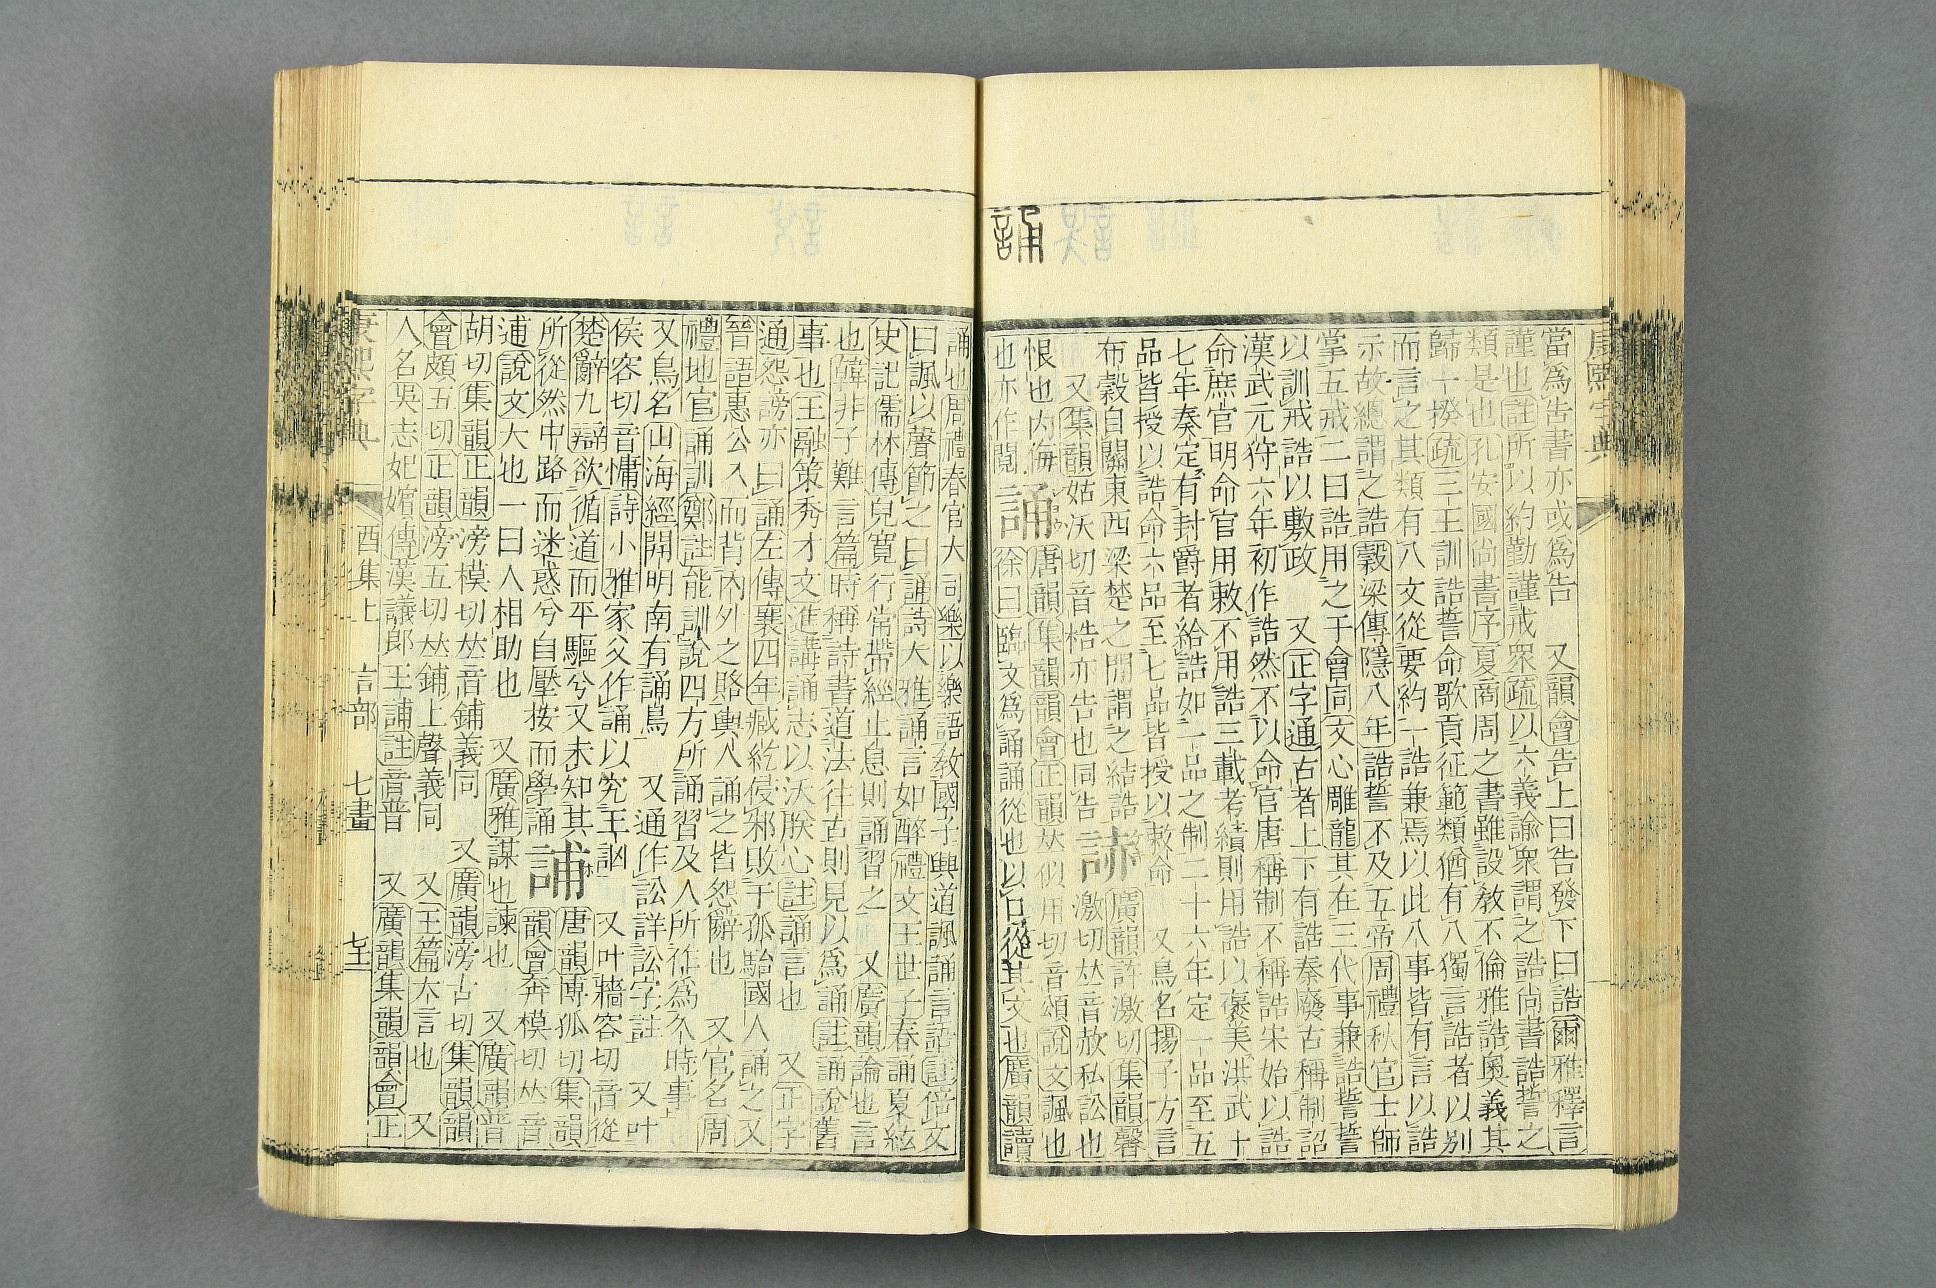 康熙字典
當為告書亦或為告 又韻會告上曰告發下曰誥爾雅釋言
謹也註所以約勤謹戒眾疏以六義諭眾謂之誥尚書誥誓之
類是也孔安國尚書序夏商周之書雖設教不倫雅誥奧義其
歸一揆疏三王訓誥誓命歌貢征範類猶有八獨言誥者以別
而言之其類有八文從要約一誥兼焉以此八事皆有言以誥
示故總謂之誥穀梁傳隱八年誥誓不及五帝周禮秋官士師
掌五戒二曰誥用之于會同文心雕龍其在三代事兼誥誓誓
以訓戒誥以敷政 又正字通古者上下有誥秦廢古稱制詔
漢武元狩六年初作誥然不以命官唐稱制不稱誥宋始以誥
命庶官明命官用敕不用誥三載考績則用誥以褒美洪武十
七年奏定有封爵者給誥如一品之制二十六年定一品至五
品皆授以誥命六品至七品皆授以敕命 又鳥名揚子方言
布穀自關東西梁楚之閒謂之結誥 誎 廣韻許激切集韻馨
又集韻姑沃切音梏亦告也同告 激切𠀤音赦私訟也
恨也 誦 唐韻集韻韻會正韻𠀤似用切音頌說文諷也
也亦作鬩 徐曰臨文為誦誦從也以口從其文也廣韻讀
誦
誦也周禮春官大司樂以樂語教國子興道諷誦言語註倍文
曰諷以聲節之曰誦詩大雅誦言如醉禮文王世子春誦夏絃
史記儒林傳兒寬行常帶經止息則誦習之 又廣韻論也言
也韓非子難言篇時稱詩書道法往古則見以為誦註誦說舊
事也王融策秀才文進講誦志以沃朕心註誦言也 又正字
通怨謗亦曰誦左傳襄四年臧紇侵邾敗于孤駘國人誦之又
晉語惠公入而背內外之賂輿人誦之皆怨辭也 又官名周
禮地官誦訓鄭註能訓說四方所誦習及人所作為久時事
又鳥名山海經開明南有誦鳥 又通作訟詳訟字註 又叶
侯容切音慵詩小雅家父作誦以究王訩 又叶牆容切音從
楚辭九辯欲循道而平驅兮又未知其 誧 唐韻博孤切集韻
所從然中路而迷惑兮自壓按而學誦 韻會奔模切𠀤音
逋說文大也一曰人相助也 又廣雅謀也諫也 又廣韻普
胡切集韻正韻滂模切𠀤音鋪義同 又廣韻滂古切集韻韻
會頗五切正韻滂五切𠀤鋪上聲義同 又玉篇大言也 又
人名吳志妃嬪傳漢議郎王誧註音普 又廣韻集韻韻會正
康熙字典 酉集上 言部 七畫